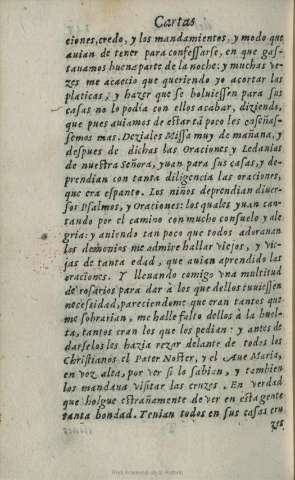 Cartas
ciones, credo, y los mandamientos, y modo que
auian de tener para confessarse, en que gas-
tauamos buena parte de la noche: y muchas ve-
zes me acaecio que queriendo yo acortar las
platicas, y hazer que se boluiessen para sus
casas no lo podia con ellos acabar, diziendo,
que pues auiamos de estar tã poco les enseñas-
semos mas. Deziales Missa muy de mañana, y
despues de dichas las Oraciones y Ledanias
de nuestra Señora, yuan para sus casas, y de-
prendian con tanta diligencia las oraciones,
que era espanto. Los niños deprendian diuer-
sos Psalmos, y Oraciones: los quales yuan can-
tando por el camino con mucho consuelo y ale
gria: y auiendo tan poco que todos adorauan
los demonios me admire hallar viejos, y vie-
jas de tanta edad, que auian aprendido las
oraciones. Y lleuando comigo vna multitud
de rosarios para dar à los que dellos tuuiessen
necessidad, pareciendome que eran tantos que
me sobrarian, me halle falto dellos à la buel-
ta, tantos eran los que los pedian: y antes de
darselos les hazia rezar delante de todos los
Christianos el Pater Noster, y el Aue Maria,
en voz alta, por ver si lo sabian, y tambien
los mandaua visitar las cruzes. En verdad
que holgue estrañamente de ver en esta gente
tanta bondad. Tenian todos en sus casas cru
zes
Real Academia de la Historia